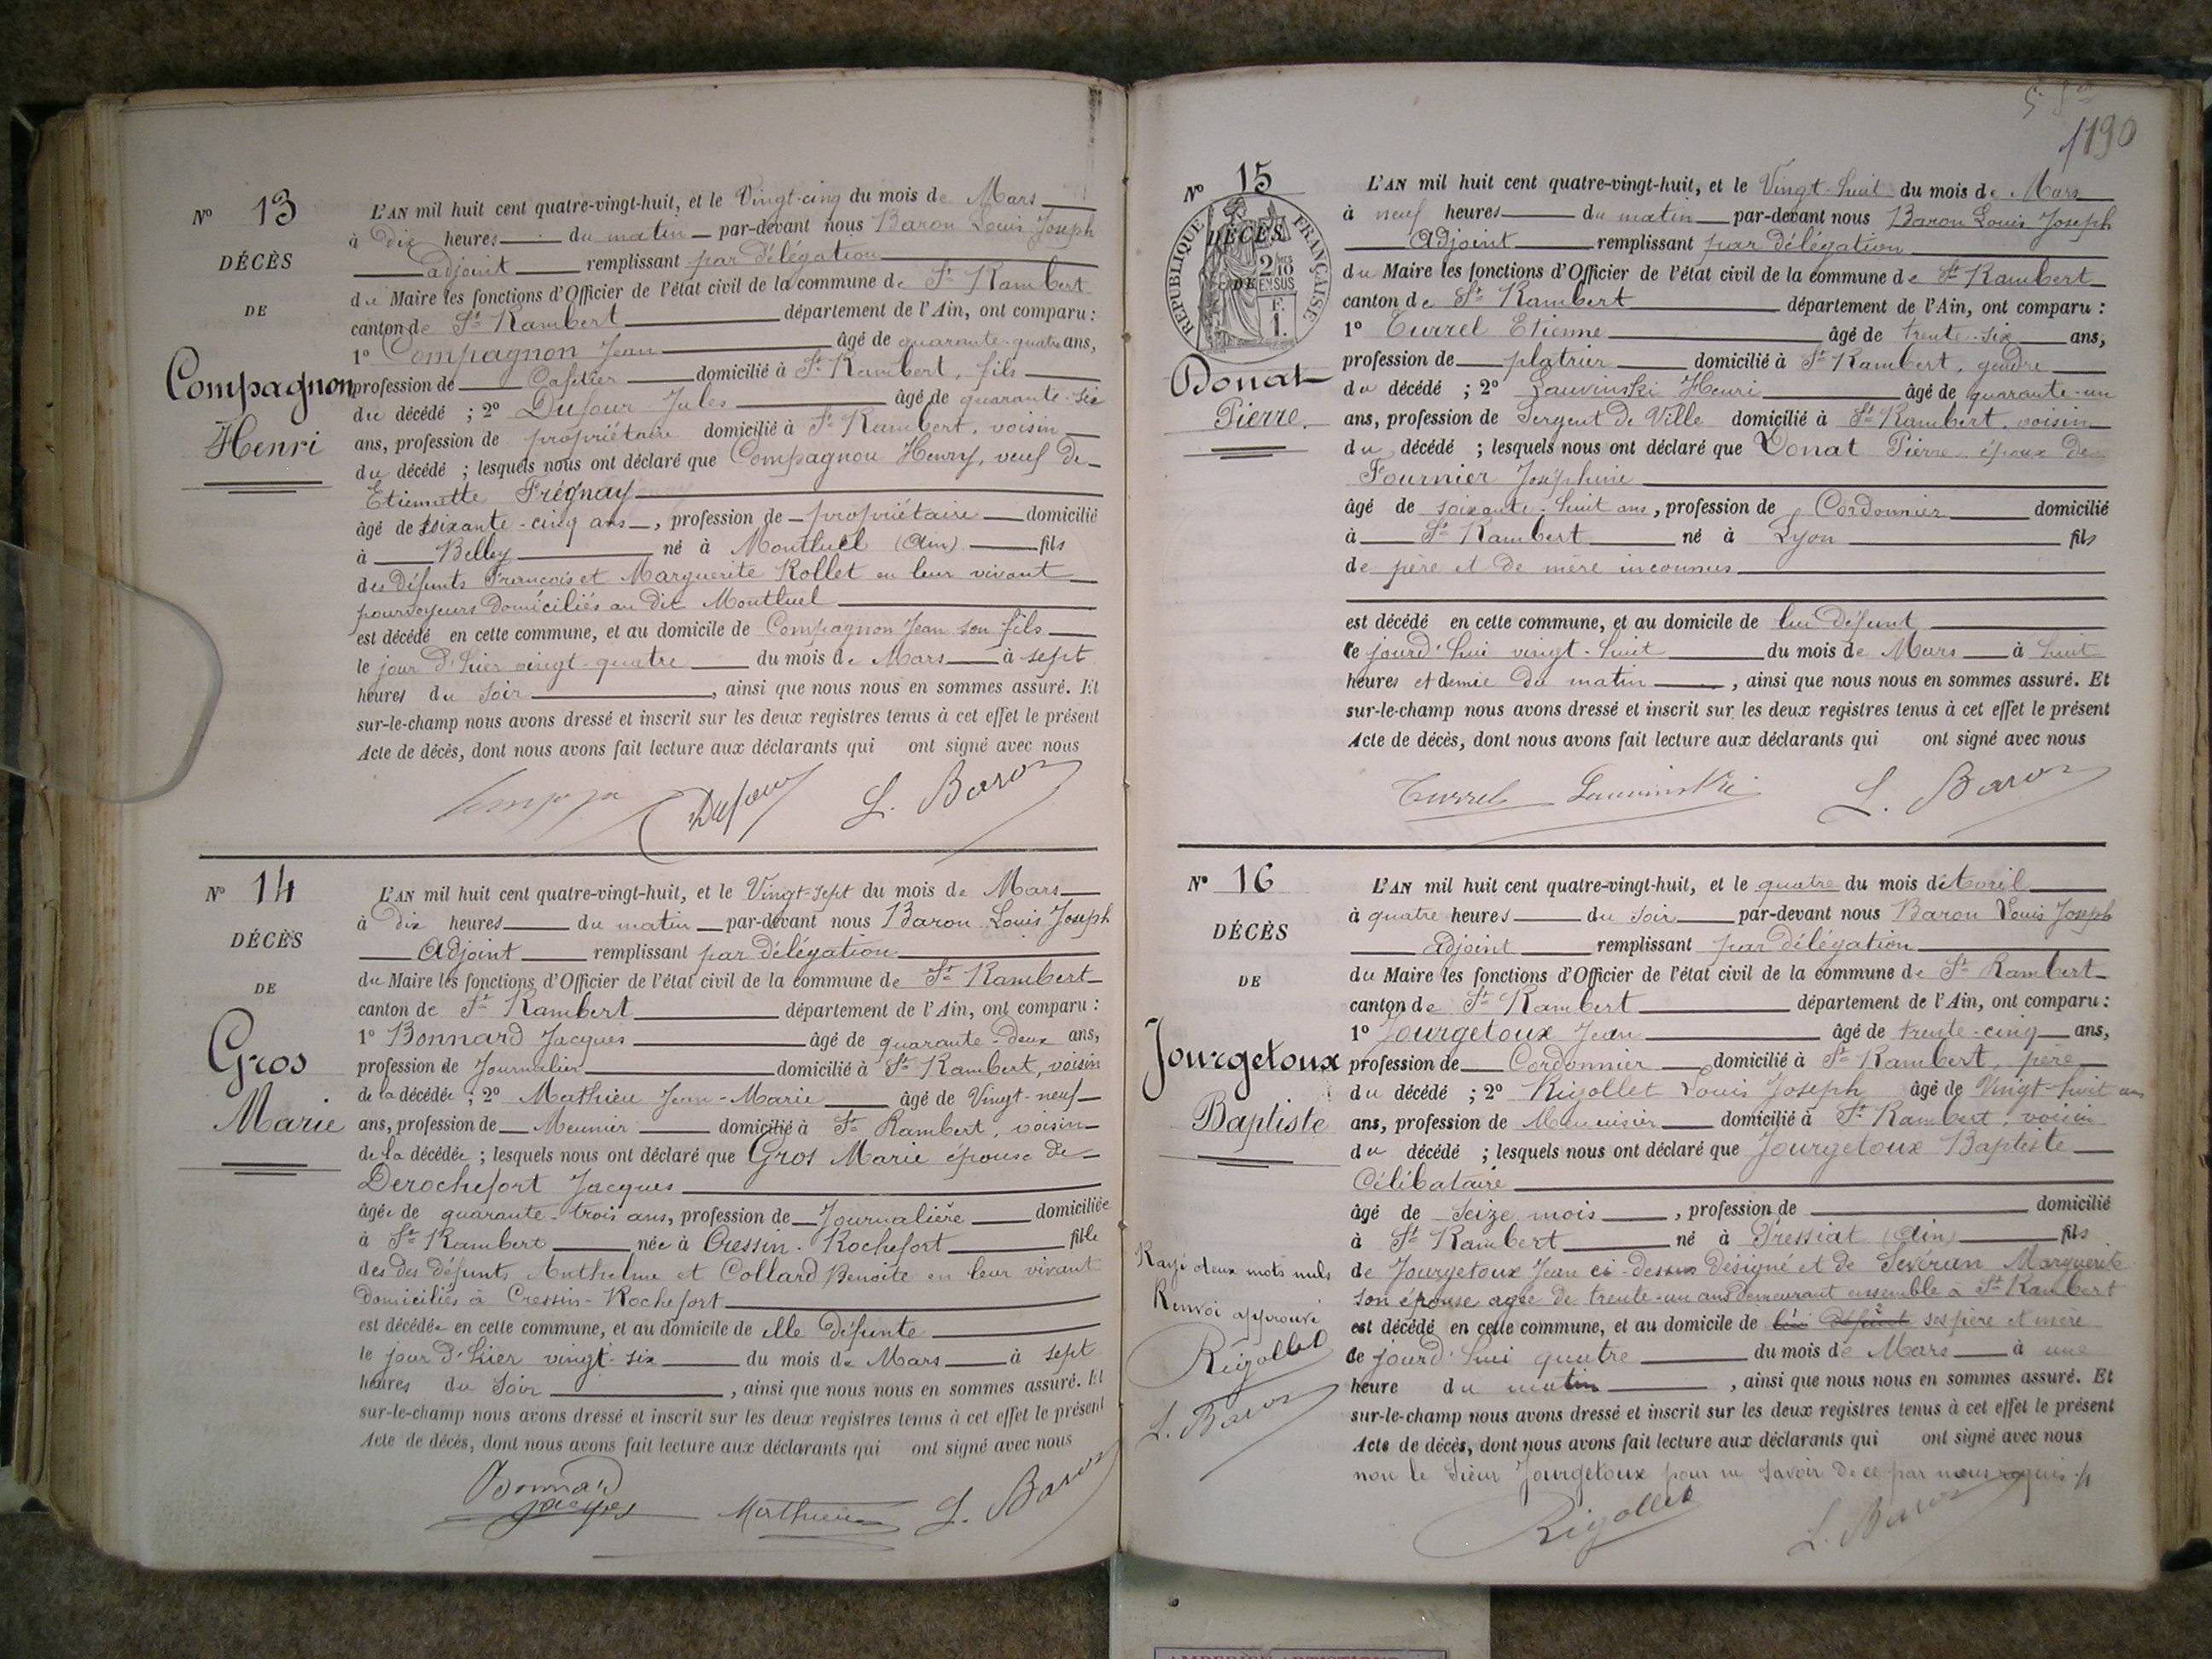 N° 13
DÉCÈS
DE
Compagnon
Henri
L'AN mil huit cent quatre-vingt-huit, et le Vingt-cinq du mois de Mars
à dix heures du matin par-devant nous Baron Louis Joseph
adjoint remplissant par délégation
du Maire les fonctions d'Officier de l'état civil de la commune de St Rambert
canton de St Rambert département de l'Ain, ont comparu :
1° Compagnon Jean âgé de quarante-quatre ans,
profession de Cafetier domicilié à St Rambert, fils
du décédé ; 2° Dufour Jules âgé de quarante-six
ans, profession de propriétaire domicilié à St Rambert, voisin
du décédé ; lesquels nous ont déclaré que Compagnon Henry, veuf de
Etiennette
âgé de soixante-cinq ans, profession de propriétaire domicilié
à Belley né à Montluel (Ain) fils
des défunts François et Marguerite Rollet en leur vivant
pourvoyeurs domiciliés au dit Montluel
est décédé en cette commune, et au domicile de Compagnon Jean son fils
le jour d'hier vingt-quatre du mois de Mars à sept
heures du soir, ainsi que nous nous en sommes assuré. Et
sur-le-champ nous avons dressé et inscrit sur les deux registres tenus à cet effet le présent
Acte de décès, dont nous avons fait lecture aux déclarants qui ont signé avec nous
Dufour L. Baron
N° 14
DÉCÈS
DE
Gros
Marie
L'AN mil huit cent quatre-vingt-huit, et le Vingt-sept du mois de Mars
à dix heures du matin par-devant nous Baron Louis Joseph
Adjoint remplissant par délégation
du Maire les fonctions d'Officier de l'état civil de la commune de St Rambert
canton de St Rambert département de l'Ain, ont comparu :
1° Bonnard Jacques âgé de quarante-deux ans,
profession de Journalier domicilié à St Rambert, voisin
de la décédée ; 2° Mathieu Jean-Marie âgé de Vingt-neuf
ans, profession de Meunier domicilié à St Rambert, voisin
de la décédée ; lesquels nous ont déclaré que Gros Marie épouse de
Derochefort Jacques
âgée de quarante-trois ans, profession de Journalière domiciliée
à St Rambert née à Cressin-Rochefort fille
des des défunts Anthelme et Collard Benoîte en leur vivant
domiciliés à Cressin-Rochefort
est décédée en cette commune, et au domicile de elle défunte
le jour d'hier vingt-six du mois de Mars à sept
heures du soir, ainsi que nous nous en sommes assuré. Et
sur-le-champ nous avons dressé et inscrit sur les deux registres tenus à cet effet le présent
Acte de décès, dont nous avons fait lecture aux déclarants qui ont signé avec nous
Bonnard
Jacques Mathieu L. Baron
190
N° 15
RÉPUBLIQUE FRANÇAISE
DÉCÈS
2/10
DE EN SUS
F.
1.
Donat
Pierre.
L'AN mil huit cent quatre-vingt-huit, et le Vingt-huit du mois de Mars
à neuf heures du matin par-devant nous Baron Louis Joseph
Adjoint remplissant par délégation
du Maire les fonctions d'Officier de l'état civil de la commune de St Rambert
canton de St Rambert département de l'Ain, ont comparu :
1° Turrel Etienne âgé de trente-six ans,
profession de platrier domicilié à St Rambert, gendre
du décédé ; 2° Lauvinski Henri âgé de quarante-un
ans, profession de Sergent de Ville domicilié à St Rambert, voisin
du décédé ; lesquels nous ont déclaré que Donat Pierre époux de
Fournier Joséphine
âgé de soixante-huit ans, profession de Cordonnier domicilié
à St Rambert né à Lyon fils
de père et de mère inconnus
est décédé en cette commune, et au domicile de lui défunt
ce jourd'hui vingt-huit du mois de Mars à huit
heures et demie du matin, ainsi que nous nous en sommes assuré. Et
sur-le-champ nous avons dressé et inscrit sur les deux registres tenus à cet effet le présent
Acte de décès, dont nous avons fait lecture aux déclarants qui ont signé avec nous
Turrel L. Baron
N° 16
DÉCÈS
DE
Jourgetoux
Baptiste
L'AN mil huit cent quatre-vingt-huit, et le quatre du mois d'Avril
à quatre heures du soir par-devant nous Baron Louis Joseph
adjoint remplissant par délégation
du Maire les fonctions d'Officier de l'état civil de la commune de St Rambert
canton de St Rambert département de l'Ain, ont comparu :
1° Jourgetoux Jean âgé de trente-cinq ans,
profession de Cordonnier domicilié à St Rambert, père
du décédé ; 2° Rigollet Louis Joseph âgé de Vingt-huit ans
ans, profession de Menuisier domicilié à St Rambert, voisin
du décédé ; lesquels nous ont déclaré que Jourgetoux Baptiste
Célibataire
âgé de Seize mois, profession de domicilié
à St Rambert né à Pressiat (Ain) fils
de Jourgetoux Jean ci-dessus désigné et de Sevéran Marguerite
son épouse agée de trente-un ans demeurant ensemble à St Rambert
est décédé en cette commune, et au domicile de lui défunt ses père et mère
ce jourd'hui quatre du mois de Mars à une
heure du matin, ainsi que nous nous en sommes assuré. Et
sur-le-champ nous avons dressé et inscrit sur les deux registres tenus à cet effet le présent
Acte de décès, dont nous avons fait lecture aux déclarants qui ont signé avec nous
non le sieur Jourgetoux pour ne savoir de ce par nous requis
Rigollet L. Baron
Rayé deux mots nuls
Renvoi approuvé
Rigollet
L. Baron